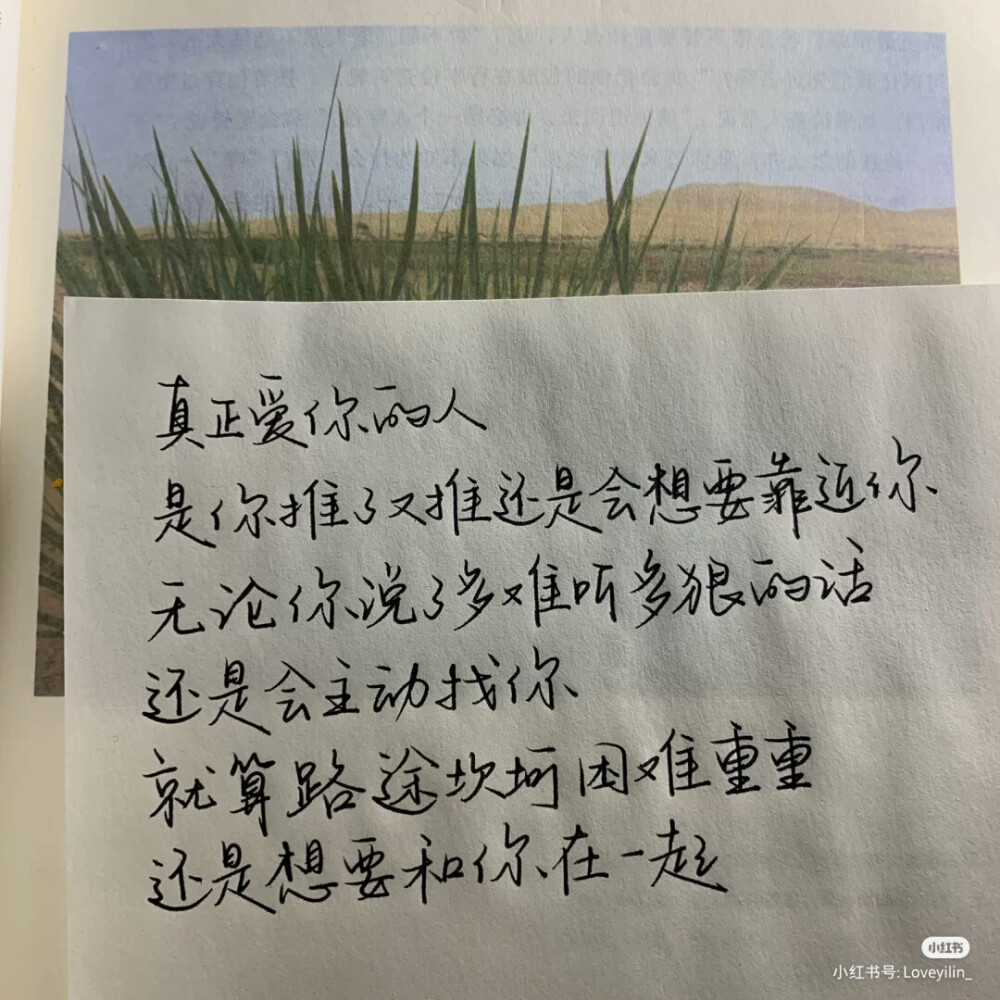 真正爱你的人
是你推了又推还是会想要靠近你
无论你说了多难听多狠的话
还是会主动找你
就算路途坎坷困难重重
还是想要和你在一起
小红书
小红书号: Loveyilin_